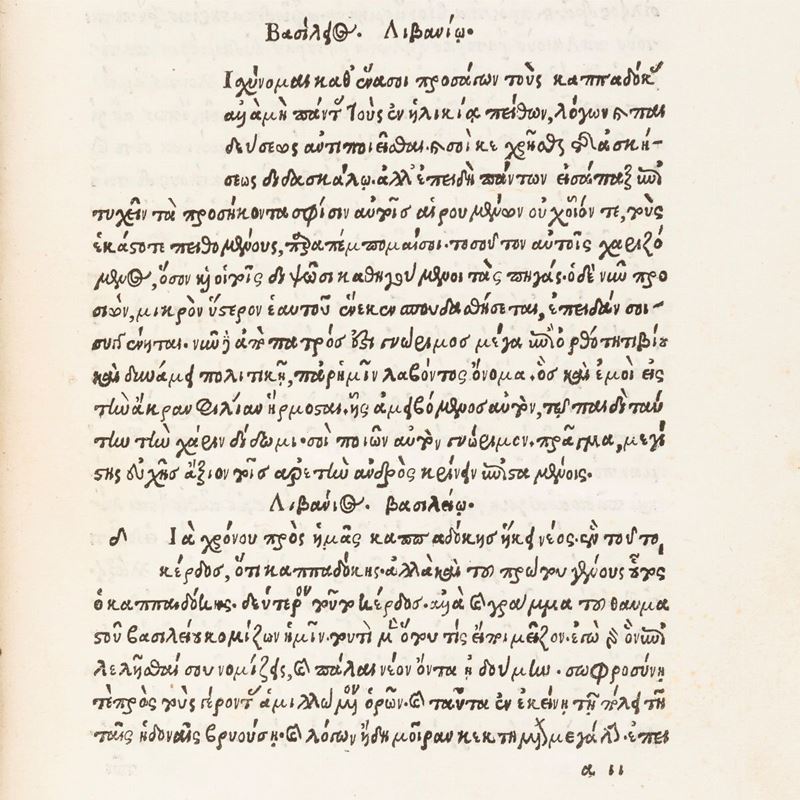 Βασίλειος. Λιβανίῳ.
Ισχύνομαι καθ' ἕνα σοι προσάγων τοὺς καππαδόκας
ἀλλὰ μὴ πάντας τοὺς ἐν ἡλικίᾳ πείθων, λόγων καὶ παι
δεύσεως ἀντιποιεῖσθαι. καὶ σοὶ κεχρῆσθαι τῆς ἀσκή-
σεως διδασκάλῳ. ἀλλ' ἐπειδὴ πάντων εἰσάπαξ ἐπι
τυχεῖν τὰ προσήκοντα σφίσιν αὐτοῖς αἱρουμένων οὐχ οἷόν τε, τοὺς
ἑκάστοτε πειθομένους, παραπέμπομαί σοι. τοσοῦτον αὐτοῖς χαριζό
μενος, ὅσον καὶ οἱ τοῖς διψῶσι καθηγούμενοι τὰς πηγάς. ὁ δὲ νῦν προ
σιὼν, μικρὸν ὕστερον ἑαυτοῦ ἕνεκεν σπουδασθήσεται, ἐπειδάν σοι-
συγγένηται. νῦν δὲ ἀπὸ πατρός ἐστι γνώριμος μέγα ἐπὶ ὀρθότητι βίου
καὶ δυνάμει πολιτικῇ, παρ' ἡμῖν λαβόντος ὄνομα. ὃς καὶ ἐμοὶ εἰς
τὴν ἄκραν φιλίαν ἥρμοσται. ἧς ἀμειβόμενος αὐτὸν, τῷ παιδὶ ταύ
την τὴν χάριν δίδωμι. σοὶ ποιῶν αὐτὸν γνώριμον. πρᾶγμα, μεγί
στης εὐχῆς ἄξιον τοῖς ἀρετὴν ἀνδρὸς κρίνειν ἐπισταμένοις.
Λιβάνιος. Βασιλείῳ.
δ Ιὰ χρόνου πρὸς ἡμᾶς καππαδόκης ἥκει νέος. ἓν τοῦτο,
κέρδος, ὅτι καππαδόκης. ἀλλὰ καὶ τοῦ πρώτου γένους οὗτος
ὁ καππαδόκης. δεύτερον τοῦτο κέρδος. ἀλλὰ καὶ γράμμα τοῦ θαυμα
στοῦ βασιλείου κομίζων ἡμῖν. τουτὶ μὲν οὗ τί τις εἴποι μεῖζον. ἐγὼ γὰρ ὃν ἐπι
λελῆσθαί σου νομίζεις, καὶ πάλαι νέον ὄντα ᾐδούμην. σωφροσύνῃ
τὲ πρὸς τοὺς γέροντας ἁμιλλώμενον ὁρῶν. καὶ ταῦτα ἐν ἐκείνῃ τῇ πόλει τῇ
ταῖς ἡδοναῖς βρυούσῃ. καὶ λόγων ἤδη μοῖραν κεκτημένον μεγάλην. ἐπει
α ιι